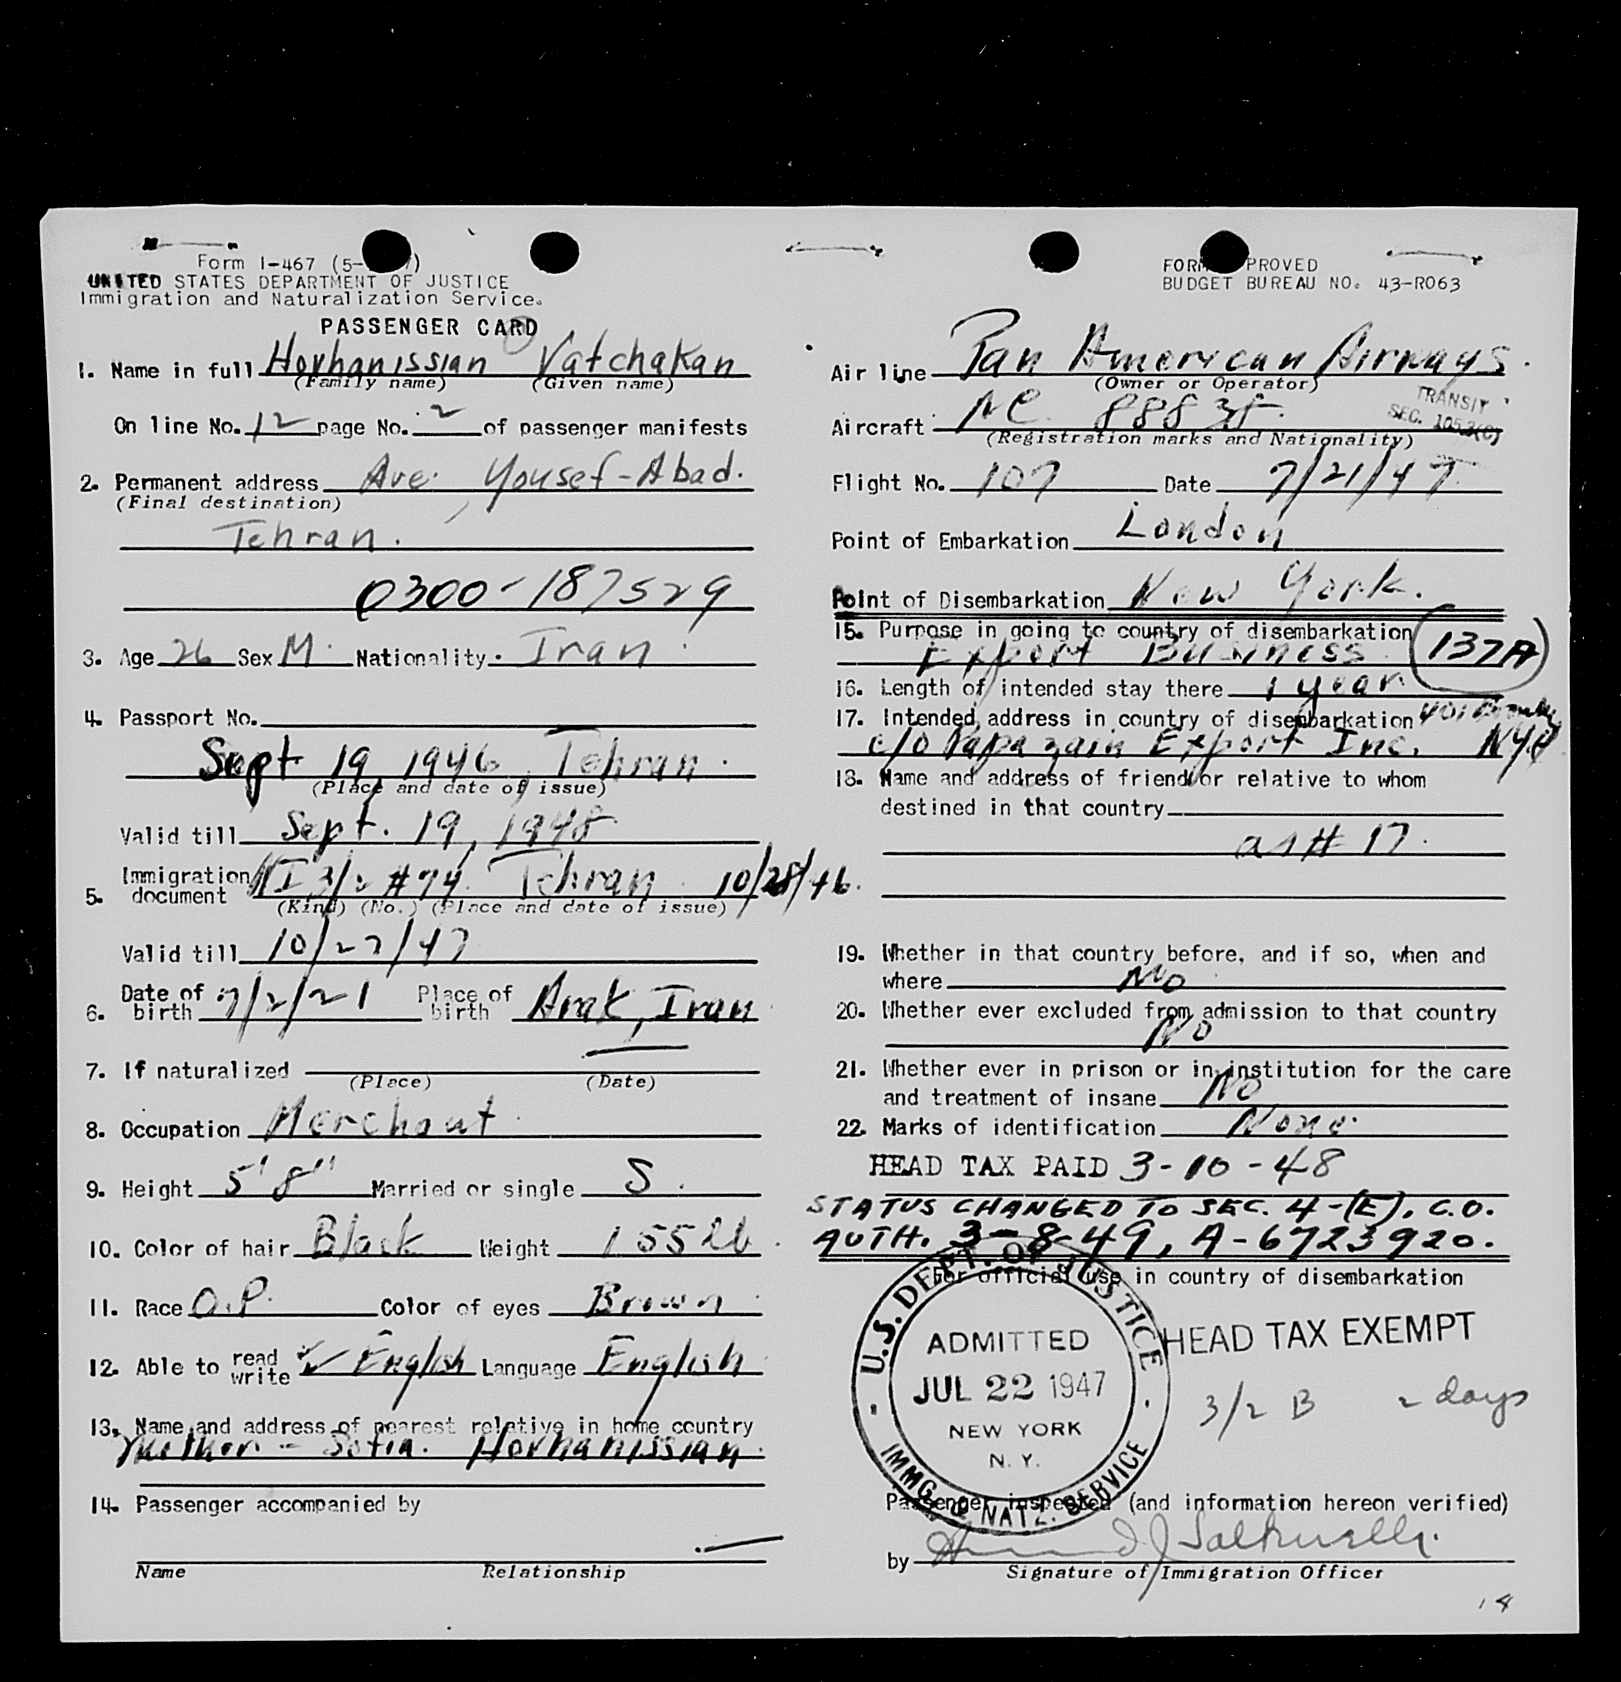 Form I-467 (5-
UNITED STATES DEPARTMENT OF JUSTICE
Immigration and Naturalization Service.
PASSENGER CARD
1. Name in full Hovhanissian Vatchakan
(Family name) (Given name)
On line No. 12 page No. 2 of passenger manifests
2. Permanent address Ave. Yousef-Abad.
(Final destination)
Tehran.
0300-187529
3. Age 26 Sex M. Nationality Iran
4. Passport No.
Sept 19 1946, Tehran.
(Place and date of issue)
Valid till Sept. 19, 1948
5. Immigration document 3/2 #74. Tehran 10/28/46.
(Kind) (No.) (Place and date of issue)
Valid till 10/27/47
6. Date of birth 7/2/21 Place of birth Arak, Iran
7. If naturalized
(Place) (Date)
8. Occupation Merchant
9. Height 5' 8" Married or single S.
10. Color of hair Black Weight 155 lb.
11. Race O.P. Color of eyes Brown
12. Able to read write ✓✓ English Language English
13. Name and address of nearest relative in home country
Mother - Sofia. Hovhanissian.
14. Passenger accompanied by
Name Relationship
FORM APPROVED
BUDGET BUREAU NO. 43-R063
Air line Pan American Airways.
(Owner or Operator)
TRANSIT
SEC. 105.3(C)
Aircraft NC 88838
(Registration marks and Nationality)
Flight No. 107 Date 7/21/47
Point of Embarkation London
Point of Disembarkation New York.
15. Purpose in going to country of disembarkation
Export Business 137A
16. Length of intended stay there 1 year
17. Intended address in country of disembarkation 401
c/o Papazain Export Inc. NYC
18. Name and address of friend or relative to whom
destined in that country
as # 17.
19. Whether in that country before, and if so, when and
where No
20. Whether ever excluded from admission to that country
No
21. Whether ever in prison or in institution for the care
and treatment of insane No
22. Marks of identification None.
HEAD TAX PAID 3-10-48
STATUS CHANGED TO SEC. 4-(E), C.O.
AUTH. 3-8-49, A-6723920.
For official use in country of disembarkation
U.S. DEPT. OF JUSTICE
ADMITTED
JUL 22 1947
NEW YORK
N. Y.
IMMG. & NATZ. SERVICE
HEAD TAX EXEMPT
3/2 B 2 days
Passenger inspected (and information hereon verified)
by
Signature of Immigration Officer